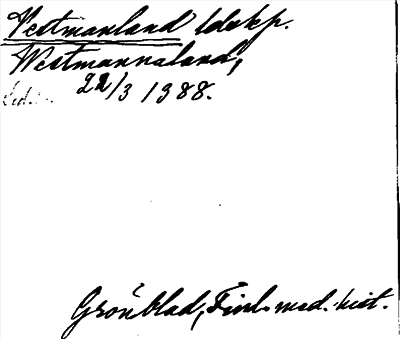 Vestmanland ldskp.
Westmannaland,
22/3 1388.
Grönblad, Finl. med. hist.